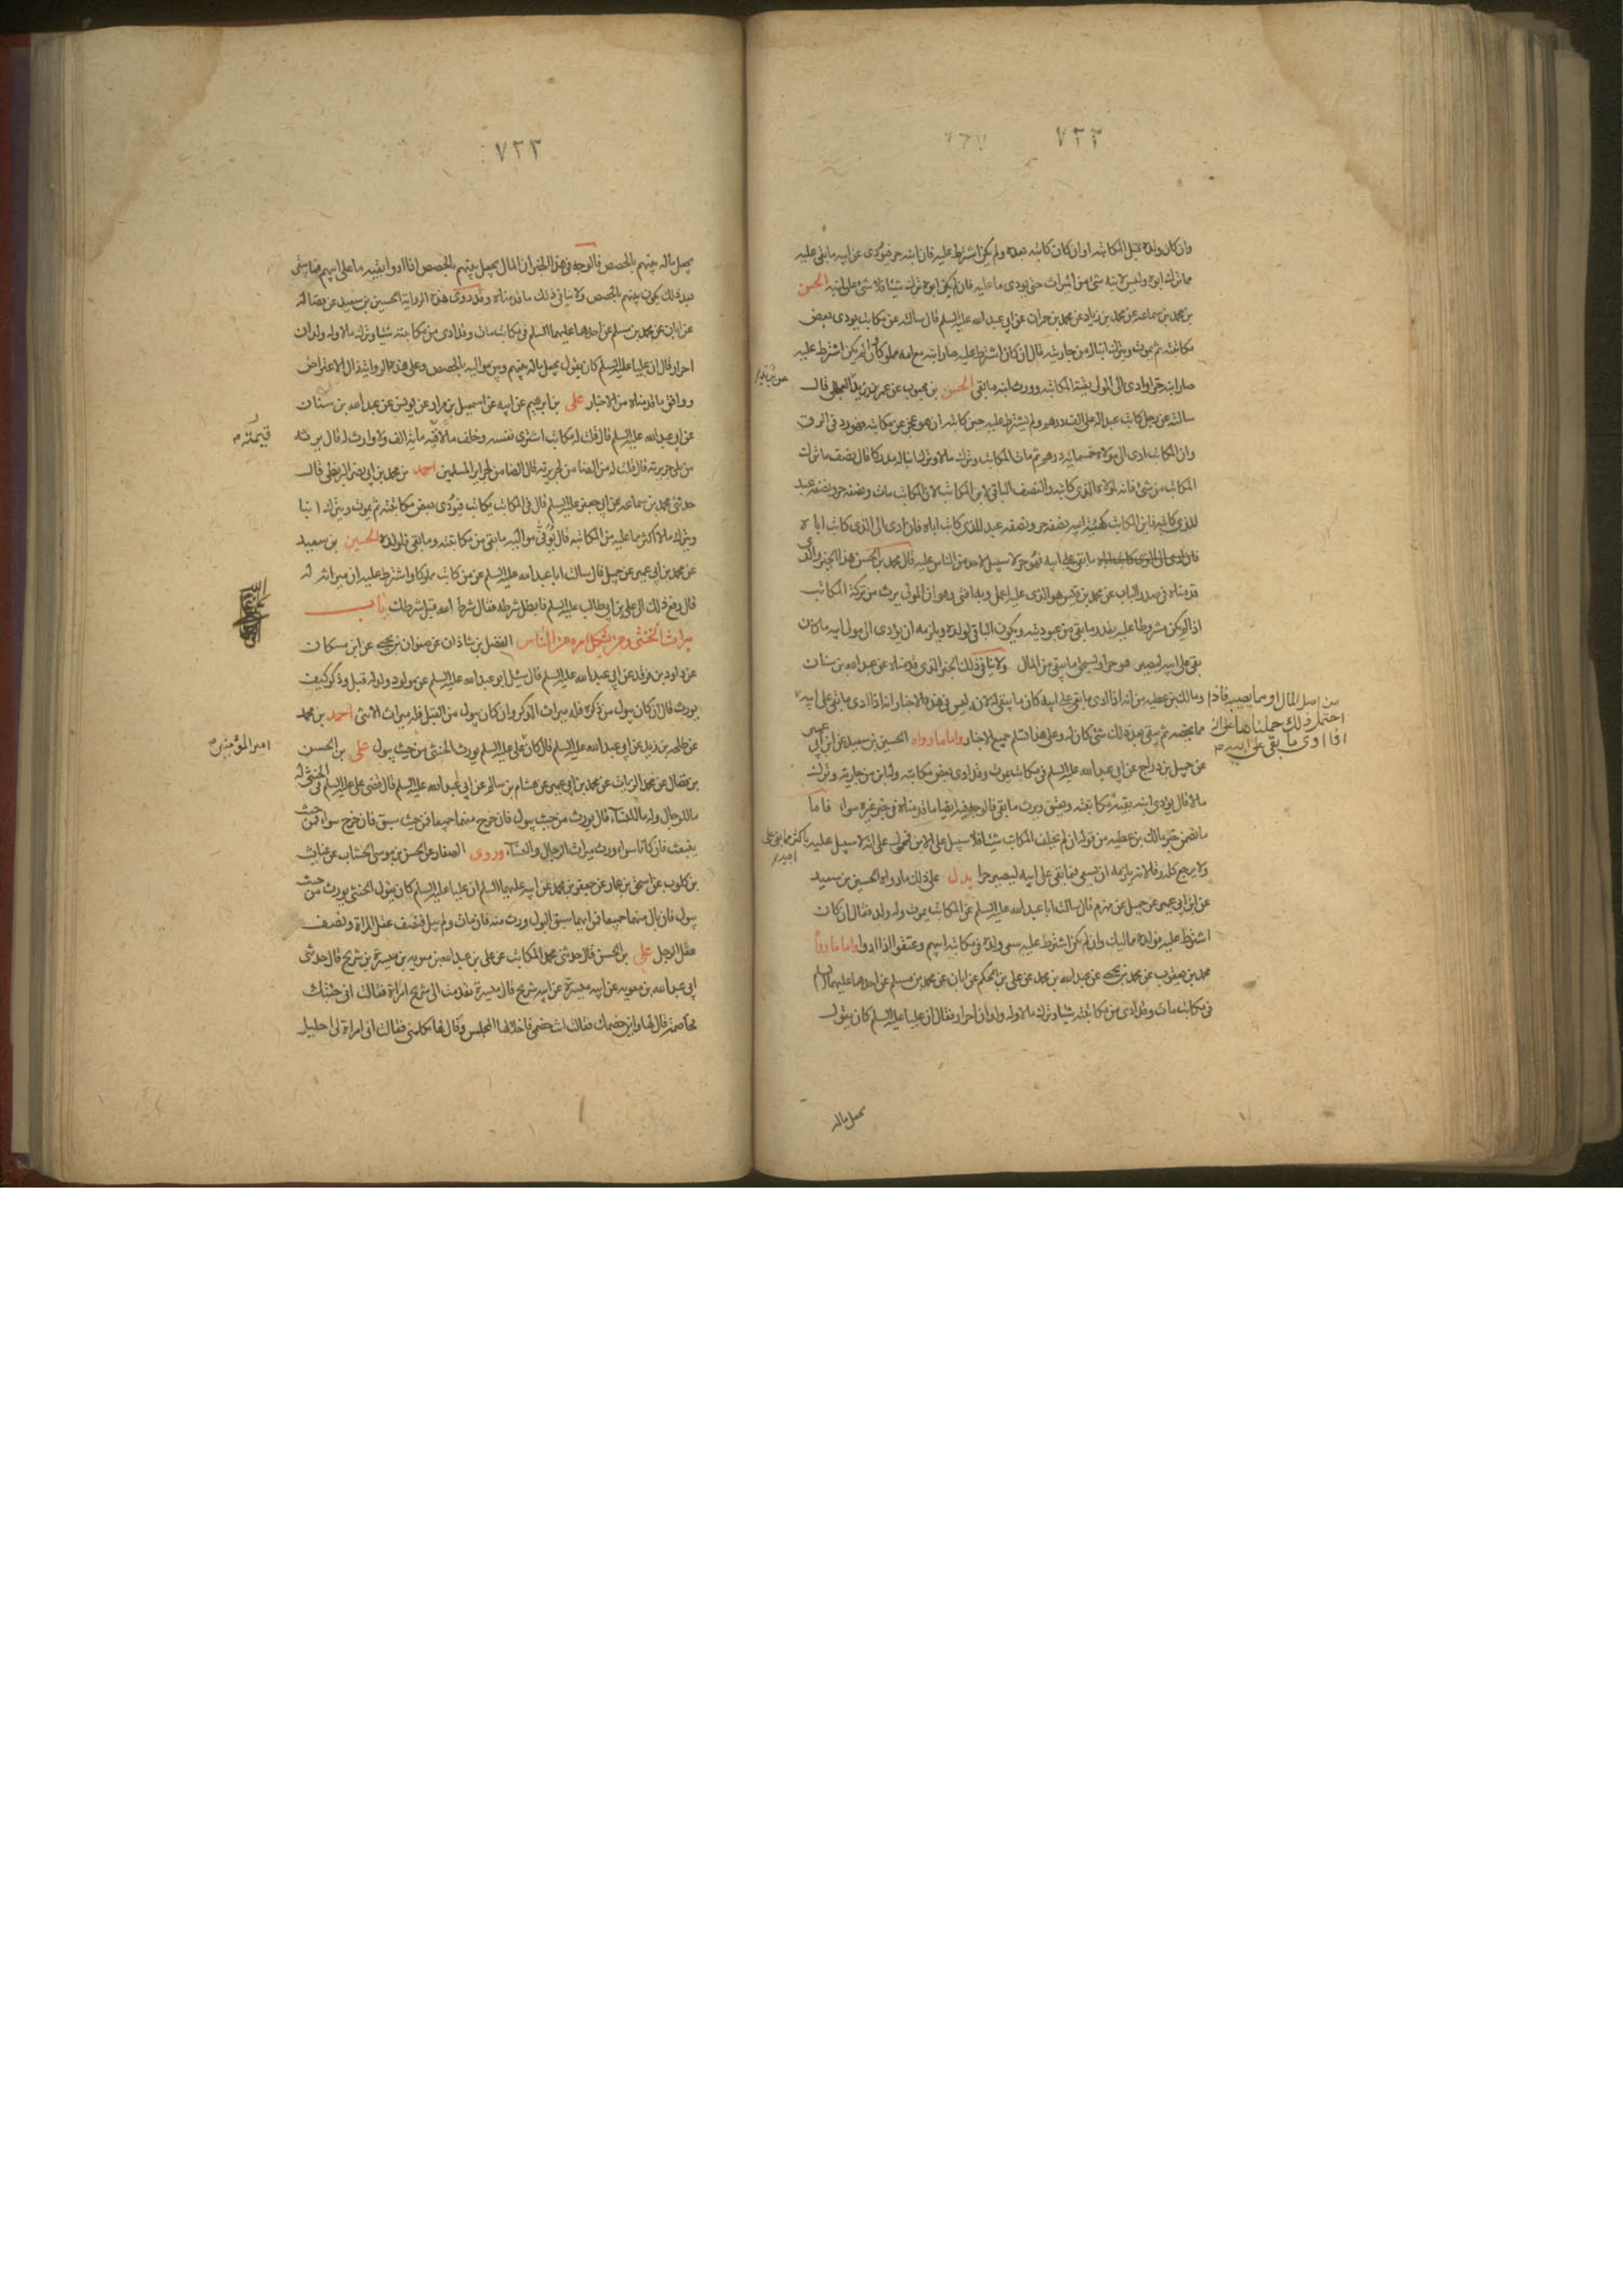 ٧٢٢
وان كان ولده قبل المكاتبه او ان كان كاتبه بعده ولم يكن اشترط عليه فان ابنه حر فيؤدى عن ابيه ما بقى عليه
مما ترك ابوه وليس لابنه شئ من الميراث حتى يودى ما عليه فان لم يكن ابوه ترك شيئا فلا شئ على ابنه الحسن
بن محمد بن سماعه عن محمد بن زياد عن محمد بن حمران عن ابى عبد الله عليه السلم قال سالته عن مكاتب يودى بعض
مكاتبته ثم يموت ويترك ابنا له من جاريته قال ان كان اشترط عليه صار ابنه مع امه مملوكان وان لم يكن اشترط عليه
صار ابنه حرا وادى الى المولى بقية المكاتبه وورث ابنه ما بقى الحسن بن محبوب عن عمر بن يزيد قال
سالته عن رجل كاتب عبدا له على الف درهم ولم يشترط عليه حين كاتبه ان هو عجز عن مكاتبته فهو رد فى الرق
وان المكاتب ادى الى مولاه خمسمائة درهم ثم مات المكاتب وترك مالا وترك ابنا له مدركا قال نصف ما ترك
المكاتب من شئ فانه لمولاه الذى كاتبه والنصف الباقى لابن المكاتب لان المكاتب مات ونصفه حر ونصفه عبد
للذى كاتبه فابن المكاتب كهيئة ابيه نصفه حر ونصفه عبد للذى كاتب اباه فان ادى الى الذى كاتب اباه
ما بقى على ابيه فهو حر لا سبيل لاحد من الناس عليه قال محمد بن الحسن هذا الخبر والذى
قدمناه فى صدر الباب عن محمد بن قيس هو الذى عليه اعمل وبه افتى وهو ان المولى يرث من تركة المكاتب
اذا لم يكن مشروطا عليه بقدر ما بقى من عبوديته ويكون الباقى لولده ويلزمه ان يؤدى الى مولى ابيه ما كان
بقى على ابيه ليصير هو حرا ويستحق ما يبقى من المال ولا ينافى ذلك الخبر الذى قدمناه عن عبد الله بن سنان
ومالك بن عطيه من انه اذا ادى ما بقى على ابيه كان ما يبقى له لانه ليس فى هذه الاخبار انه اذا ادى ما بقى على ابيه
من اصل المال او مما يصيبه فاذا
احتمل ذلك حملناها على انه
اذا ادى ما بقى على ابيه
مما يخصه ثم يبقى بعد ذلك شئ كان له وعلى هذا تسلم جميع الاخبار واما ما رواه الحسين بن سعيد عن ابن ابى عمير
عن جميل بن دراج عن ابى عبد الله عليه السلم فى مكاتب يموت وقد ادى بعض مكاتبته وله ابن من جاريته وترك
مالا قال يؤدى ابنه بقية مكاتبته ويعتق ويرث ما بقى فالوجه فيه ايضا ما قدمناه فى خبر غيره سواء فاما
ما تضمن خبر مالك بن عطيه من قوله ان لم يخلف المكاتب شيئا فلا سبيل على الابن فمحمول على انه لا سبيل عليه
باكثر مما بقى على
ابيه
ولا يرجع كله رقا لانه يلزمه ان يسعى فيما بقى على ابيه ليصير حرا يدل على ذلك ما رواه الحسين بن سعيد
عن ابن ابى عمير عن جميل عن مهزم قال سالت ابا عبد الله عليه السلم عن المكاتب يموت وله ولد فقال ان كان
اشترط عليه فولده مماليك وان لم يكن اشترط عليه سعى ولده فى مكاتبة ابيهم وعتقوا اذا ادوا واما ما رواه
محمد بن يعقوب عن محمد بن يحيى عن عبد الله بن محمد عن على بن الحكم عن ابان عن محمد بن مسلم عن احدهما عليهما السلم
فى مكاتب مات وقد ادى من مكاتبته شيئا وترك مالا وله ولدان احرار فقال ان عليا عليه السلم كان يقول
يجعل ماله
٧٢٣
يجعل ماله بينهم بالحصص فالوجه فى هذا الخبر ان المال يجعل بينهم بالحصص اذا ادوا بقيه ما على ابيهم فما يبقى
بعد ذلك يكون بينهم بالحصص ولا ينافى ذلك ما قدمناه وقد روى هذه الرواية الحسين بن سعيد عن فضاله
عن ابان عن محمد بن مسلم عن احدهما عليهما السلم فى مكاتب مات وقد ادى من مكاتبته شيئا وترك مالا وله ولدان
احرار قال ان عليا عليه السلم كان يقول يجعل ماله بينهم وبين مواليه بالحصص وعلى هذه الرواية زال الاعتراض
ووافق ما قدمناه من الاخبار على بن ابرهيم عن ابيه عن اسمعيل بن مرار عن يونس عن عبد الله بن سنان
عن ابى عبد الله عليه السلم قال قلت له مكاتب اشترى نفسه وخلف مالا قيمته مائة الف ولا وارث له قال يرثه
قيمته
من يلى جريرته قال قلت له من الضامن لجريرته قال الضامن لجراير المسلمين احمد بن محمد بن ابى نصر البزنطى قال
حدثنى محمد بن سماعه عن ابى جعفر عليه السلم قال فى المكاتب يكاتب فيؤدى بعض مكاتبته ثم يموت ويترك ابنا
ويترك مالا اكثر مما عليه من المكاتبه قال يوفى مواليه ما بقى من مكاتبته وما بقى فلولده الحسين بن سعيد
عن محمد بن ابى عمير عن جميل قال سالت ابا عبد الله عليه السلم عن من كاتب مملوكا واشترط عليه ان ميراثه له
قال رفع ذلك الى على بن ابى طالب عليه السلم فابطل شرطه فقال شرط الله قبل شرطك باب
ميراث الخنثى ومن يشكل امره من الناس الفضل بن شاذان عن صفوان بن يحيى عن ابن مسكان
عن داود بن فرقد عن ابى عبد الله عليه السلم قال سئل ابو عبد الله عليه السلم عن مولود ولد له قبل وذكر كيف
يورث قال ان كان يبول من ذكره فله ميراث الذكر وان كان يبول من القبل فله ميراث الانثى احمد بن محمد
عن طلحه بن زيد عن ابى عبد الله عليه السلم قال كان على عليه السلم يورث الخنثى من حيث يبول على بن الحسن
امير المؤمنين
بن فضال عن محمد الزيات عن محمد بن ابى عمير عن هشام بن سالم عن ابى عبد الله عليه السلم قال قضى على عليه السلم فى الخنثى له
ما للرجال وله ما للنساء قال يورث من حيث يبول فان خرج منهما جميعا فمن حيث سبق فان خرج سواء فمن حيث
ينبعث فان كانا سواء ورث ميراث الرجال والنساء وروى الصفار عن الحسن بن موسى الخشاب عن غياث
بن كلوب عن اسحق بن عمار عن جعفر بن محمد عن ابيه عليهما السلم ان عليا عليه السلم كان يقول الخنثى يورث من حيث
يبول فان بال منهما جميعا فمن ايهما سبق البول ورث منه فان مات ولم يبل فنصف عقل المراة ونصف
عقل الرجل على بن الحسن قال حدثنى محمد الكاتب عن على بن عبد الله بن معويه بن ميسرة بن شريح قال حدثنى
ابى عبد الله بن معويه عن ابيه ميسرة عن ابيه شريح قال ميسرة تقدمت الى شريح امراة فقالت انى جئتك
مخاصمة قال لها واين خصمك فقالت انت خصمى فاخلى لها المجلس وقال لها تكلمى فقالت انى امراة لى احليل